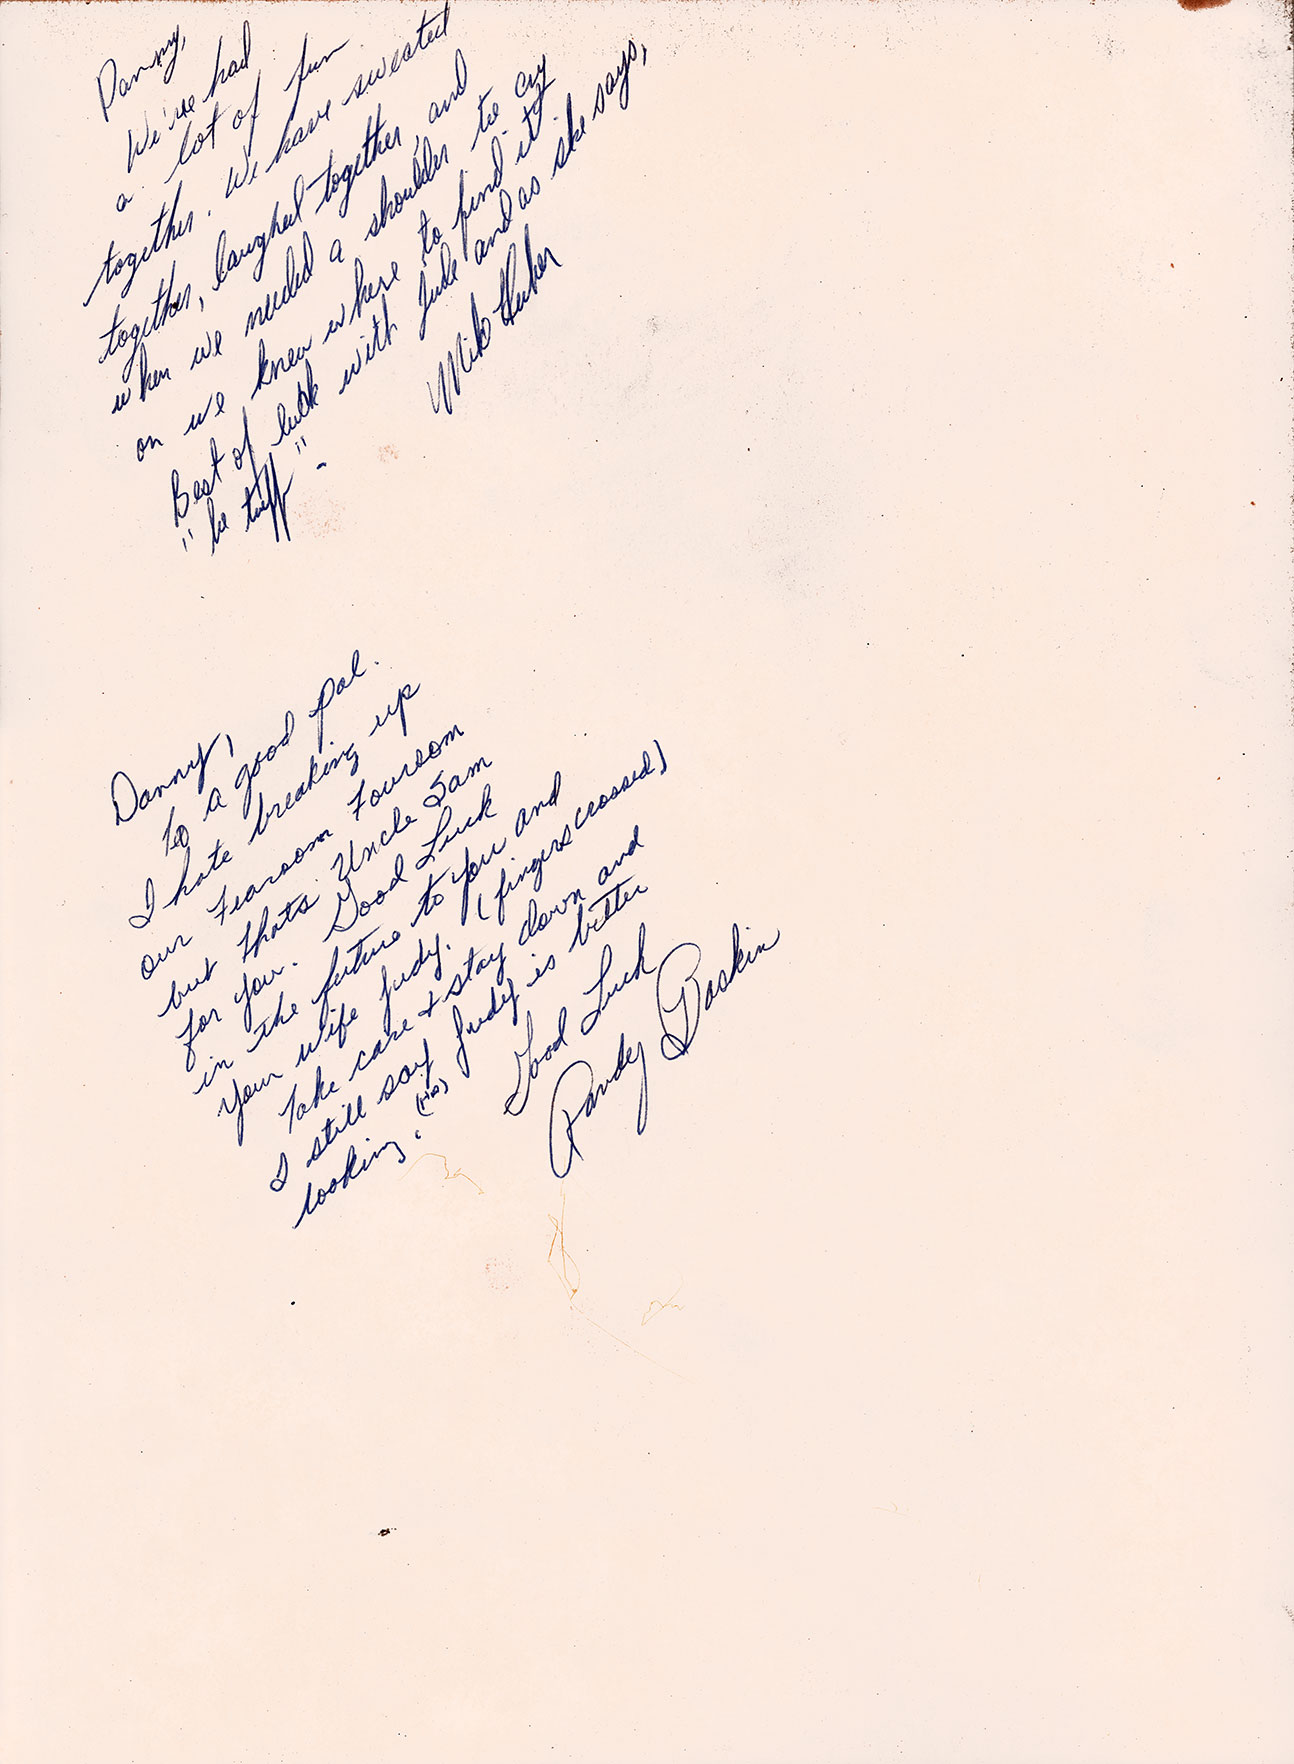 Danny,
We've had
a lot of fun
together. We have sweated
together, laughed together, and
when we needed a shoulder to cry
on we knew where to find it.
Best of luck with Jude and as she says,
"be tuff".
Mike Huber
Danny,
To a good pal.
I hate breaking up
our Fearsom Foursom
but thats Uncle Sam
for you. Good Luck
in the future to you and
your wife Judy. (fingers crossed)
Take care + stay down and
I still say Judy is better
looking. (Ha)
Good Luck
Randy Baskin